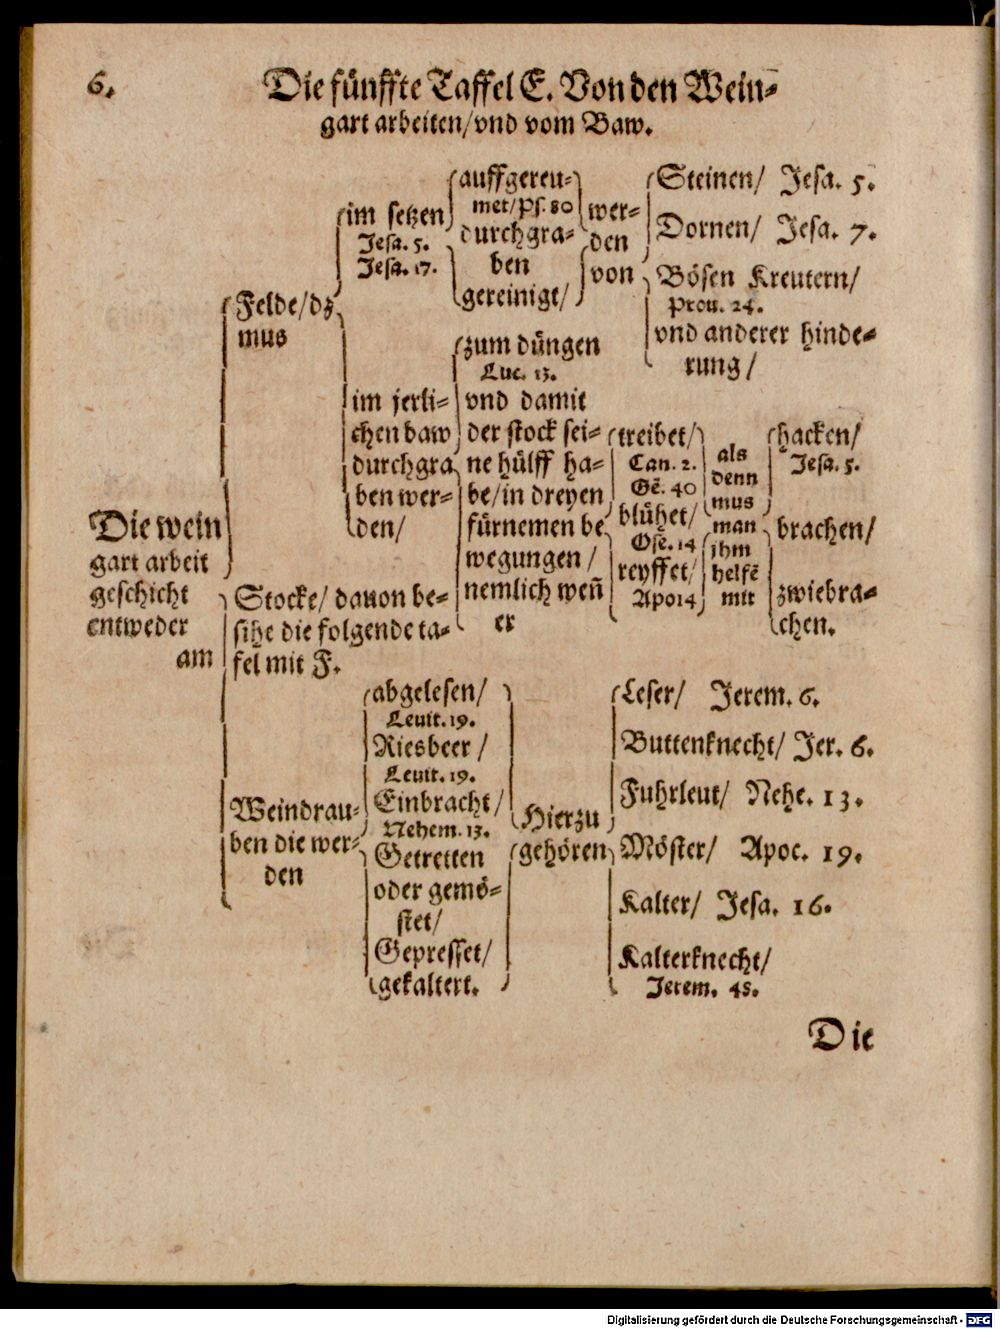 6.
Die fünffte Taffel E. Von den Wein-
gart arbeiten/vnd vom Baw.
Die wein
gart arbeit
geschicht
entweder
am
Felde/dz
mus
im setzen
Jesa. 5.
Jesa. 17.
auffgereu-
met/Ps. 80
durchgra-
ben
gereinigt/
wer-
den
von
Steinen/ Jesa. 5.
Dornen/ Jesa. 7.
Bösen Kreutern/
Prou. 24.
vnd anderer hinde-
rung/
im jerli-
chen baw
durchgra
ben wer-
den/
zum düngen
Luc. 13.
vnd damit
der stock sei-
ne hülff ha-
be/in dreyen
fürnemen be
wegungen/
nemlich weñ
er
treibet/
Can. 2.
Gē. 40
blühet/
Ose. 14
reyffet/
Apo14
als
denn
mus
man
jhm
helfē
mit
hacken/
Jesa. 5.
brachen/
zwiebra-
chen.
Stocke/ dauon be-
sihe die folgende ta-
fel mit F.
Weindrau-
ben die wer-
den
abgelesen/
Leuit. 19.
Riesbeer/
Leuit. 19.
Einbracht/
Nehem. 13.
Getretten
oder gemö-
stet/
Gepresset/
gekaltert.
Hierzu
gehören
Leser/ Jerem. 6.
Buttenknecht/ Jer. 6.
Fuhrleut/ Nehe. 13.
Möster/ Apoc. 19.
Kalter/ Jesa. 16.
Kalterknecht/
Jerem. 48.
Die
Digitalisierung gefördert durch die Deutsche Forschungsgemeinschaft - DFG